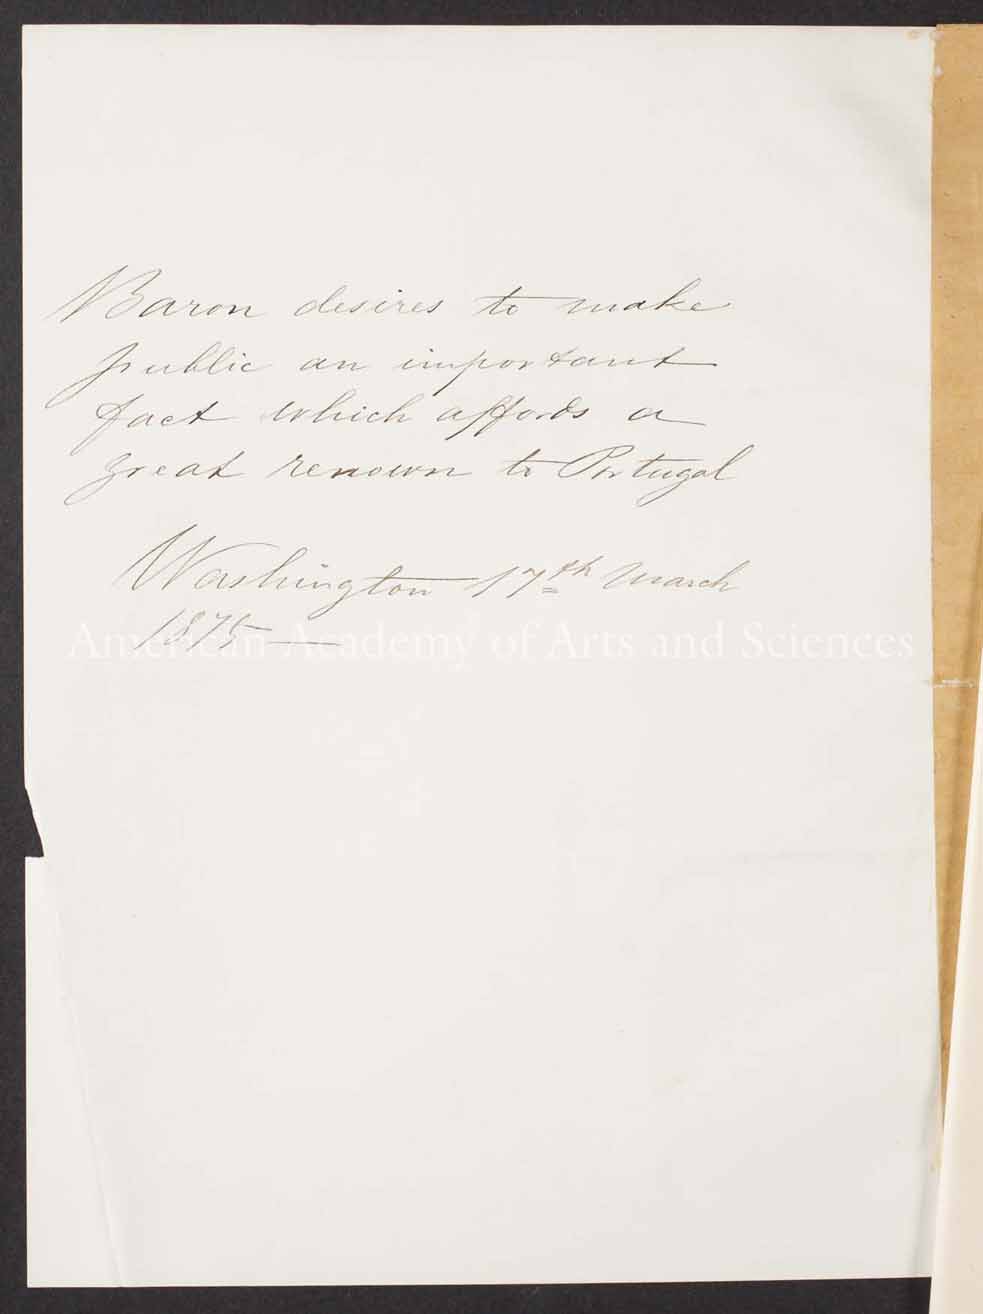 Baron desires to make
public an important
fact which affords a
great renown to Portugal
Washington 17th March
1875
American Academy of Arts and Sciences